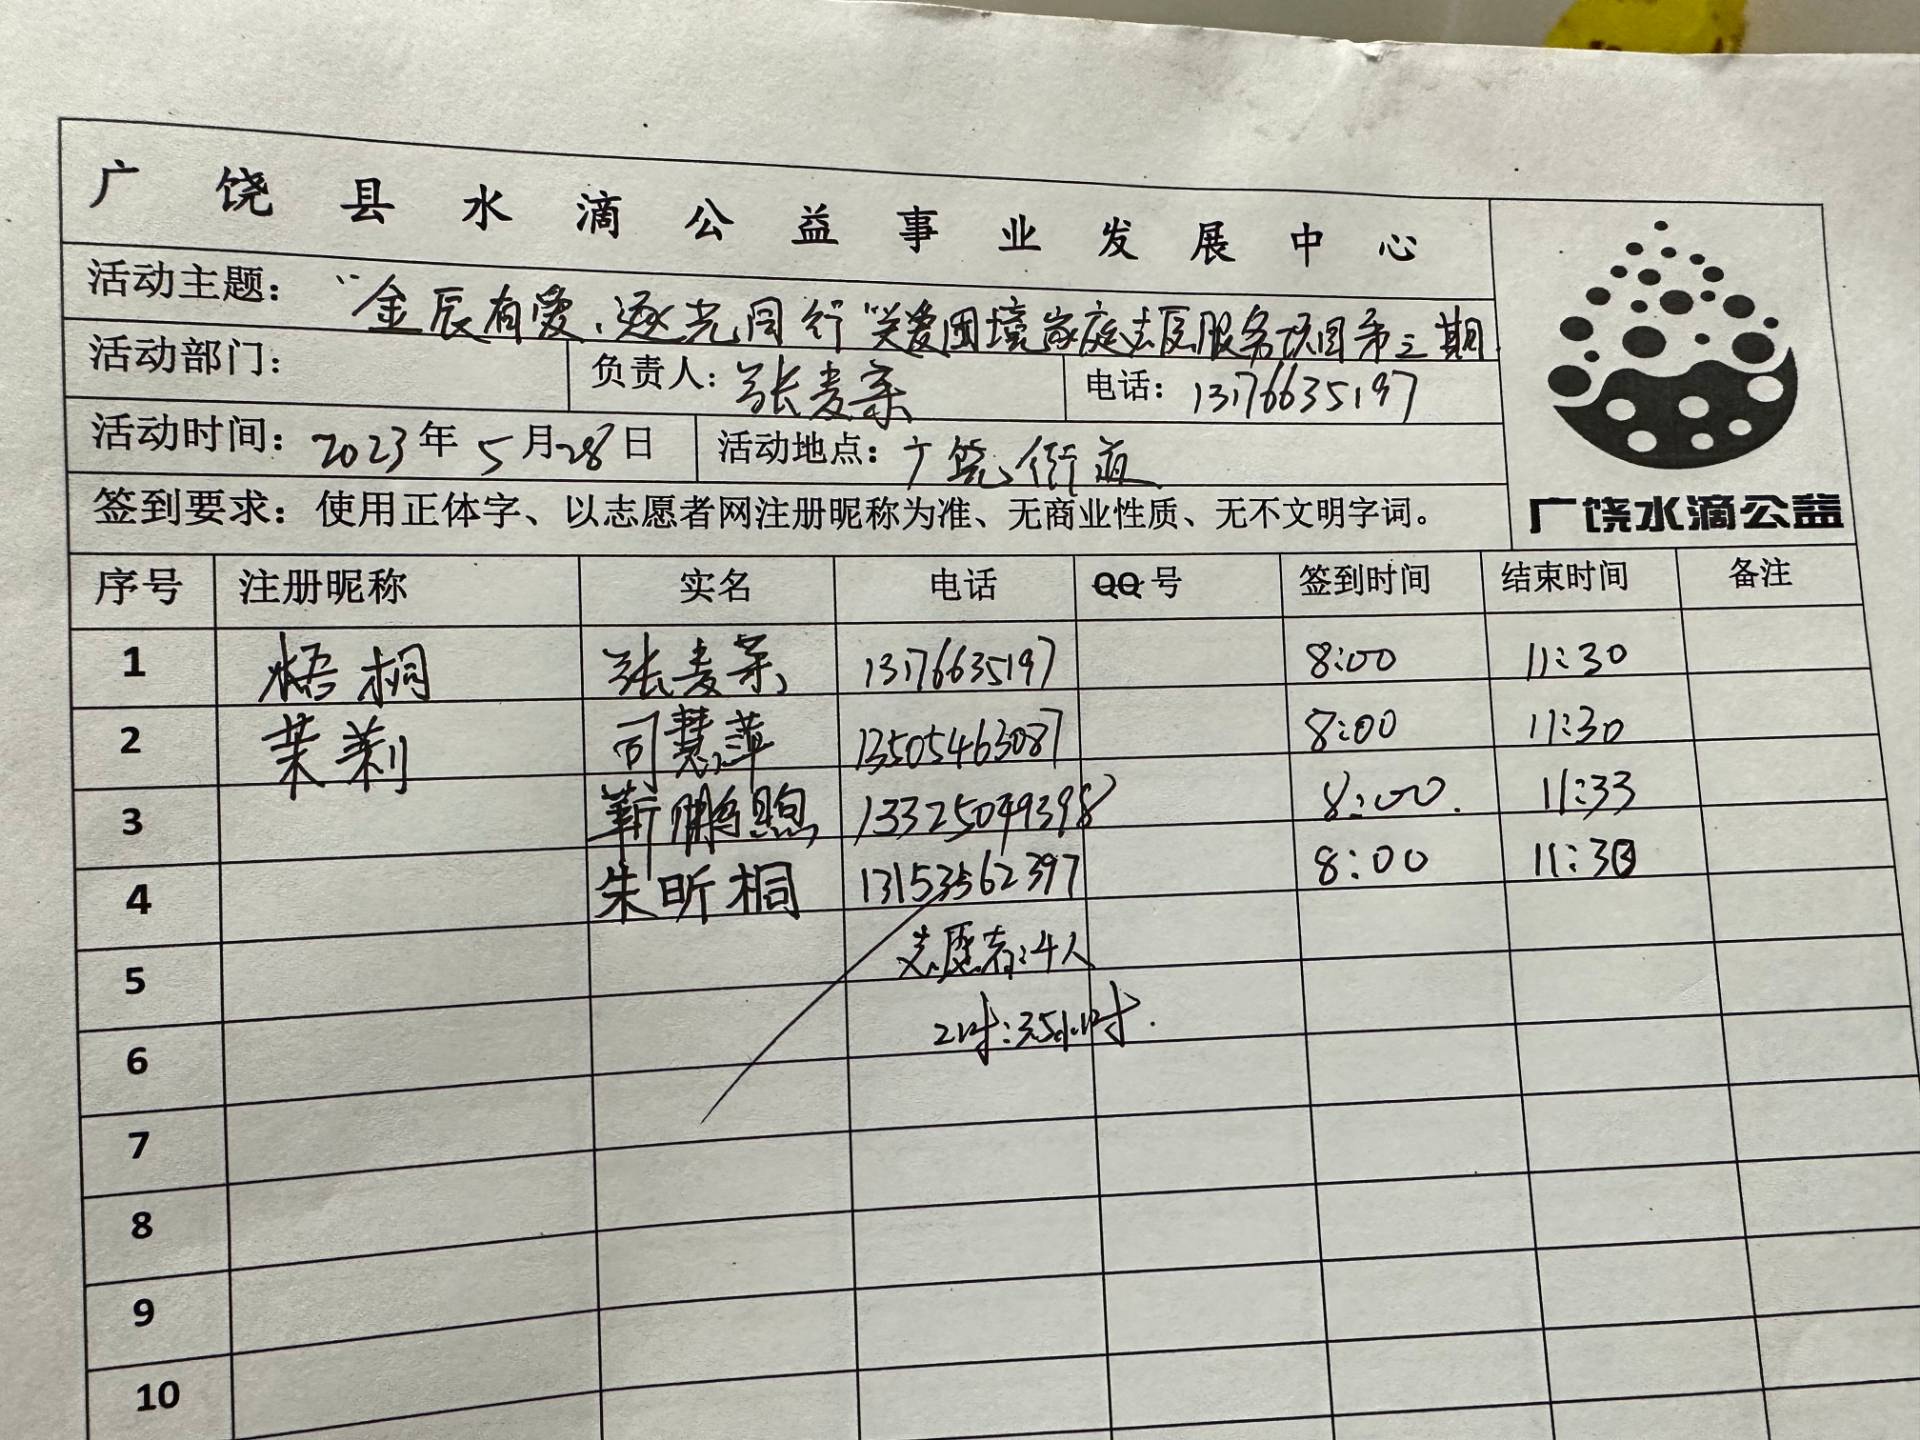 广饶县水滴公益事业发展中心
活动主题："金辰有爱、逐光同行"关爱困境家庭志愿服务项目第三期
活动部门： 负责人：张麦荣 电话：13176635197
活动时间：2023年5月28日 活动地点：广饶街道
签到要求：使用正体字、以志愿者网注册昵称为准、无商业性质、无不文明字词。
广饶水滴公益
序号 注册昵称 实名 电话 QQ号 签到时间 结束时间 备注
1 梧桐 张麦荣 13176635197 8:00 11:30
2 茉莉 司慧萍 13505463087 8:00 11:30
3 靳鹏煦 13325049398 8:00. 11:33
4 朱昕桐 13153562397 8:00 11:30
5 志愿者:4人
6 :3.5小时.
7
8
9
10